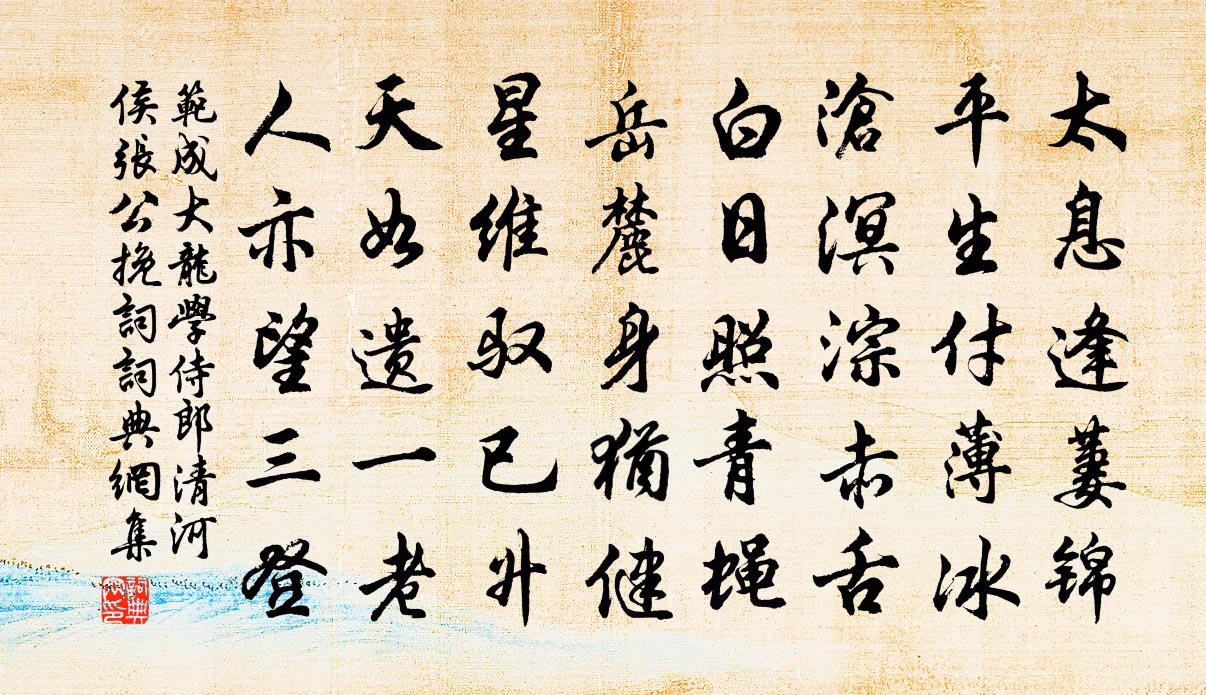 太息逢萋锦
平生付薄冰
滄溟淙赤舌
白日照青蝇
岳麓身猶健
星维驭已升
天如遗一老
人亦望三登
範成大龍學侍郎清河
侯張公挽詞詞典網集